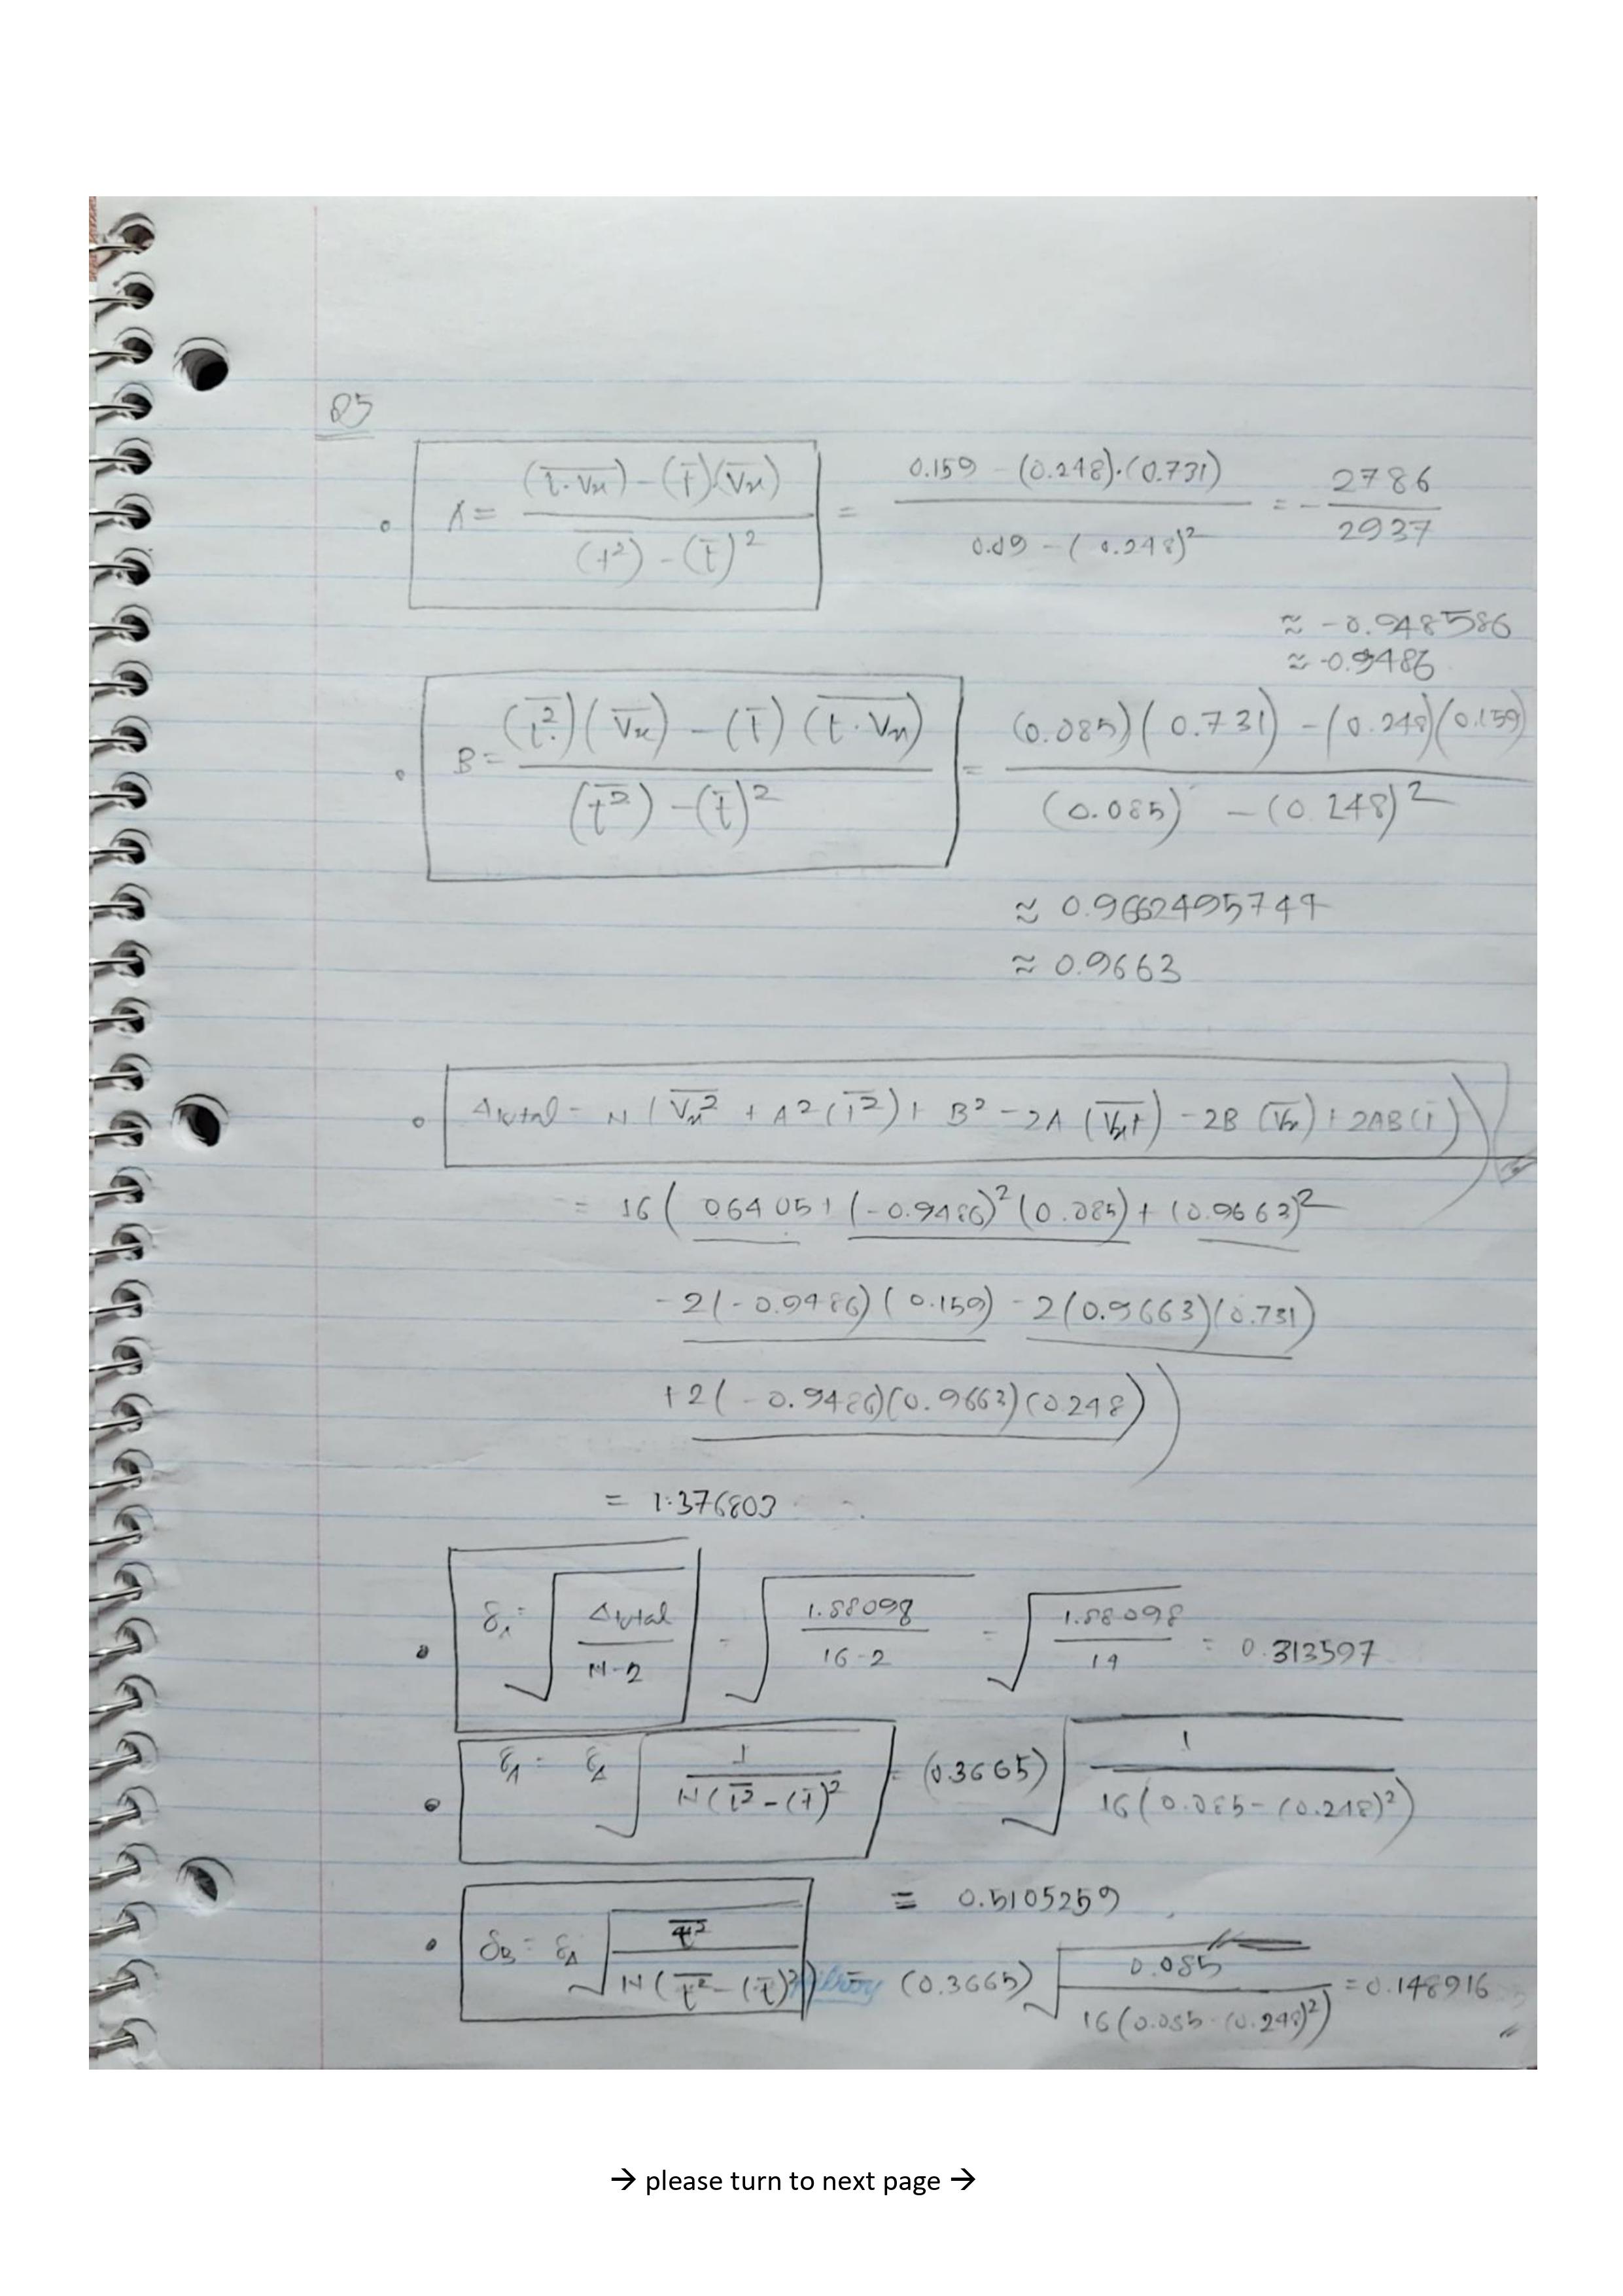 Q5
A = ((t·Vx)‾) - (t̄)(V̄x) / (t²‾) - (t̄)² = 0.159 - (0.248)·(0.731) / 0.09 - (0.248)² = - 2786 / 2937
≈ -0.948586
≈ -0.9486
B = (t²‾)(V̄x) - (t̄)(t·Vx‾) / (t²‾) - (t̄)² = (0.085)(0.731) - (0.248)(0.159) / (0.085) - (0.248)²
≈ 0.9662495744
≈ 0.9663
Δtotal = N(Vx²‾ + A²(t²‾) + B² - 2A(Vxt‾) - 2B(V̄x) + 2AB(t̄))
= 16(0.6405 + (-0.9486)²(0.085) + (0.9663)²
-2(-0.9486)(0.159) - 2(0.9663)(0.731)
+2(-0.9486)(0.9663)(0.248))
= 1.376803
δΔ = √(Δtotal / N-2) = √(1.88098 / 16-2) = √(1.88098 / 14) = 0.313597
δA = δΔ √(1 / N(t²‾ - (t̄)²) = (0.3665) √(1 / 16(0.085 - (0.248)²))
= 0.5105259
δB = δΔ √(t²‾ / N(t²‾ - (t̄)²)) = (0.3665) √(0.085 / 16(0.085 - (0.248)²)) = 0.148916
→ please turn to next page →